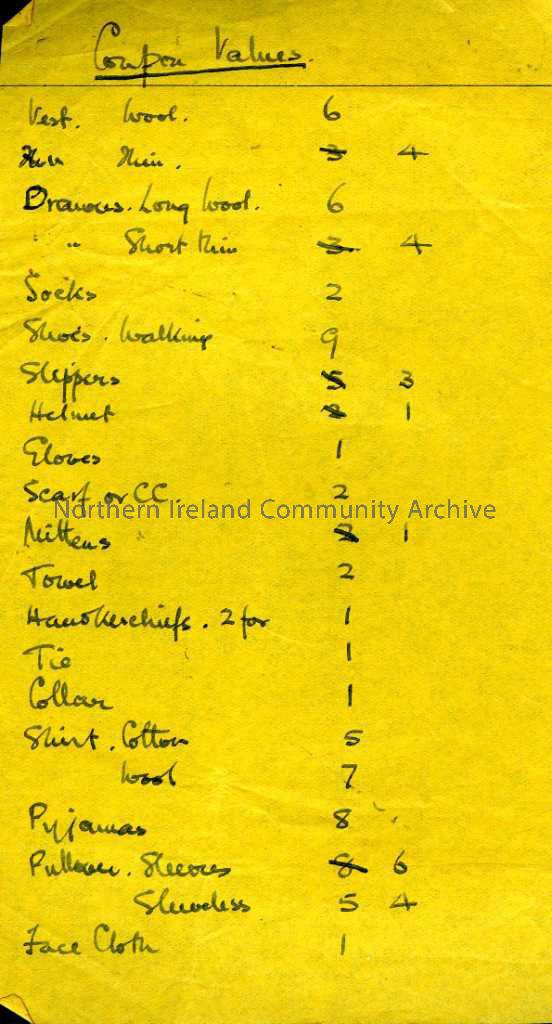 Coupon Values.
Vest. Wool. 6
Thin. 3 4
Drawers. Long Wool. 6
" " Short thin 3 4
Socks 2
Shoes. Walking 9
Slippers 5 3
Helmet 2 1
Gloves 1
Scarf or CC 2
Northern Ireland Community Archive
Mittens 2 1
Towel 2
Handkerchiefs. 2 for 1
Tie 1
Collar 1
Shirt. Cotton 5
Wool 7
Pyjamas 8
Pullover. Sleeves 8 6
Sleeveless 5 4
Face Cloth 1